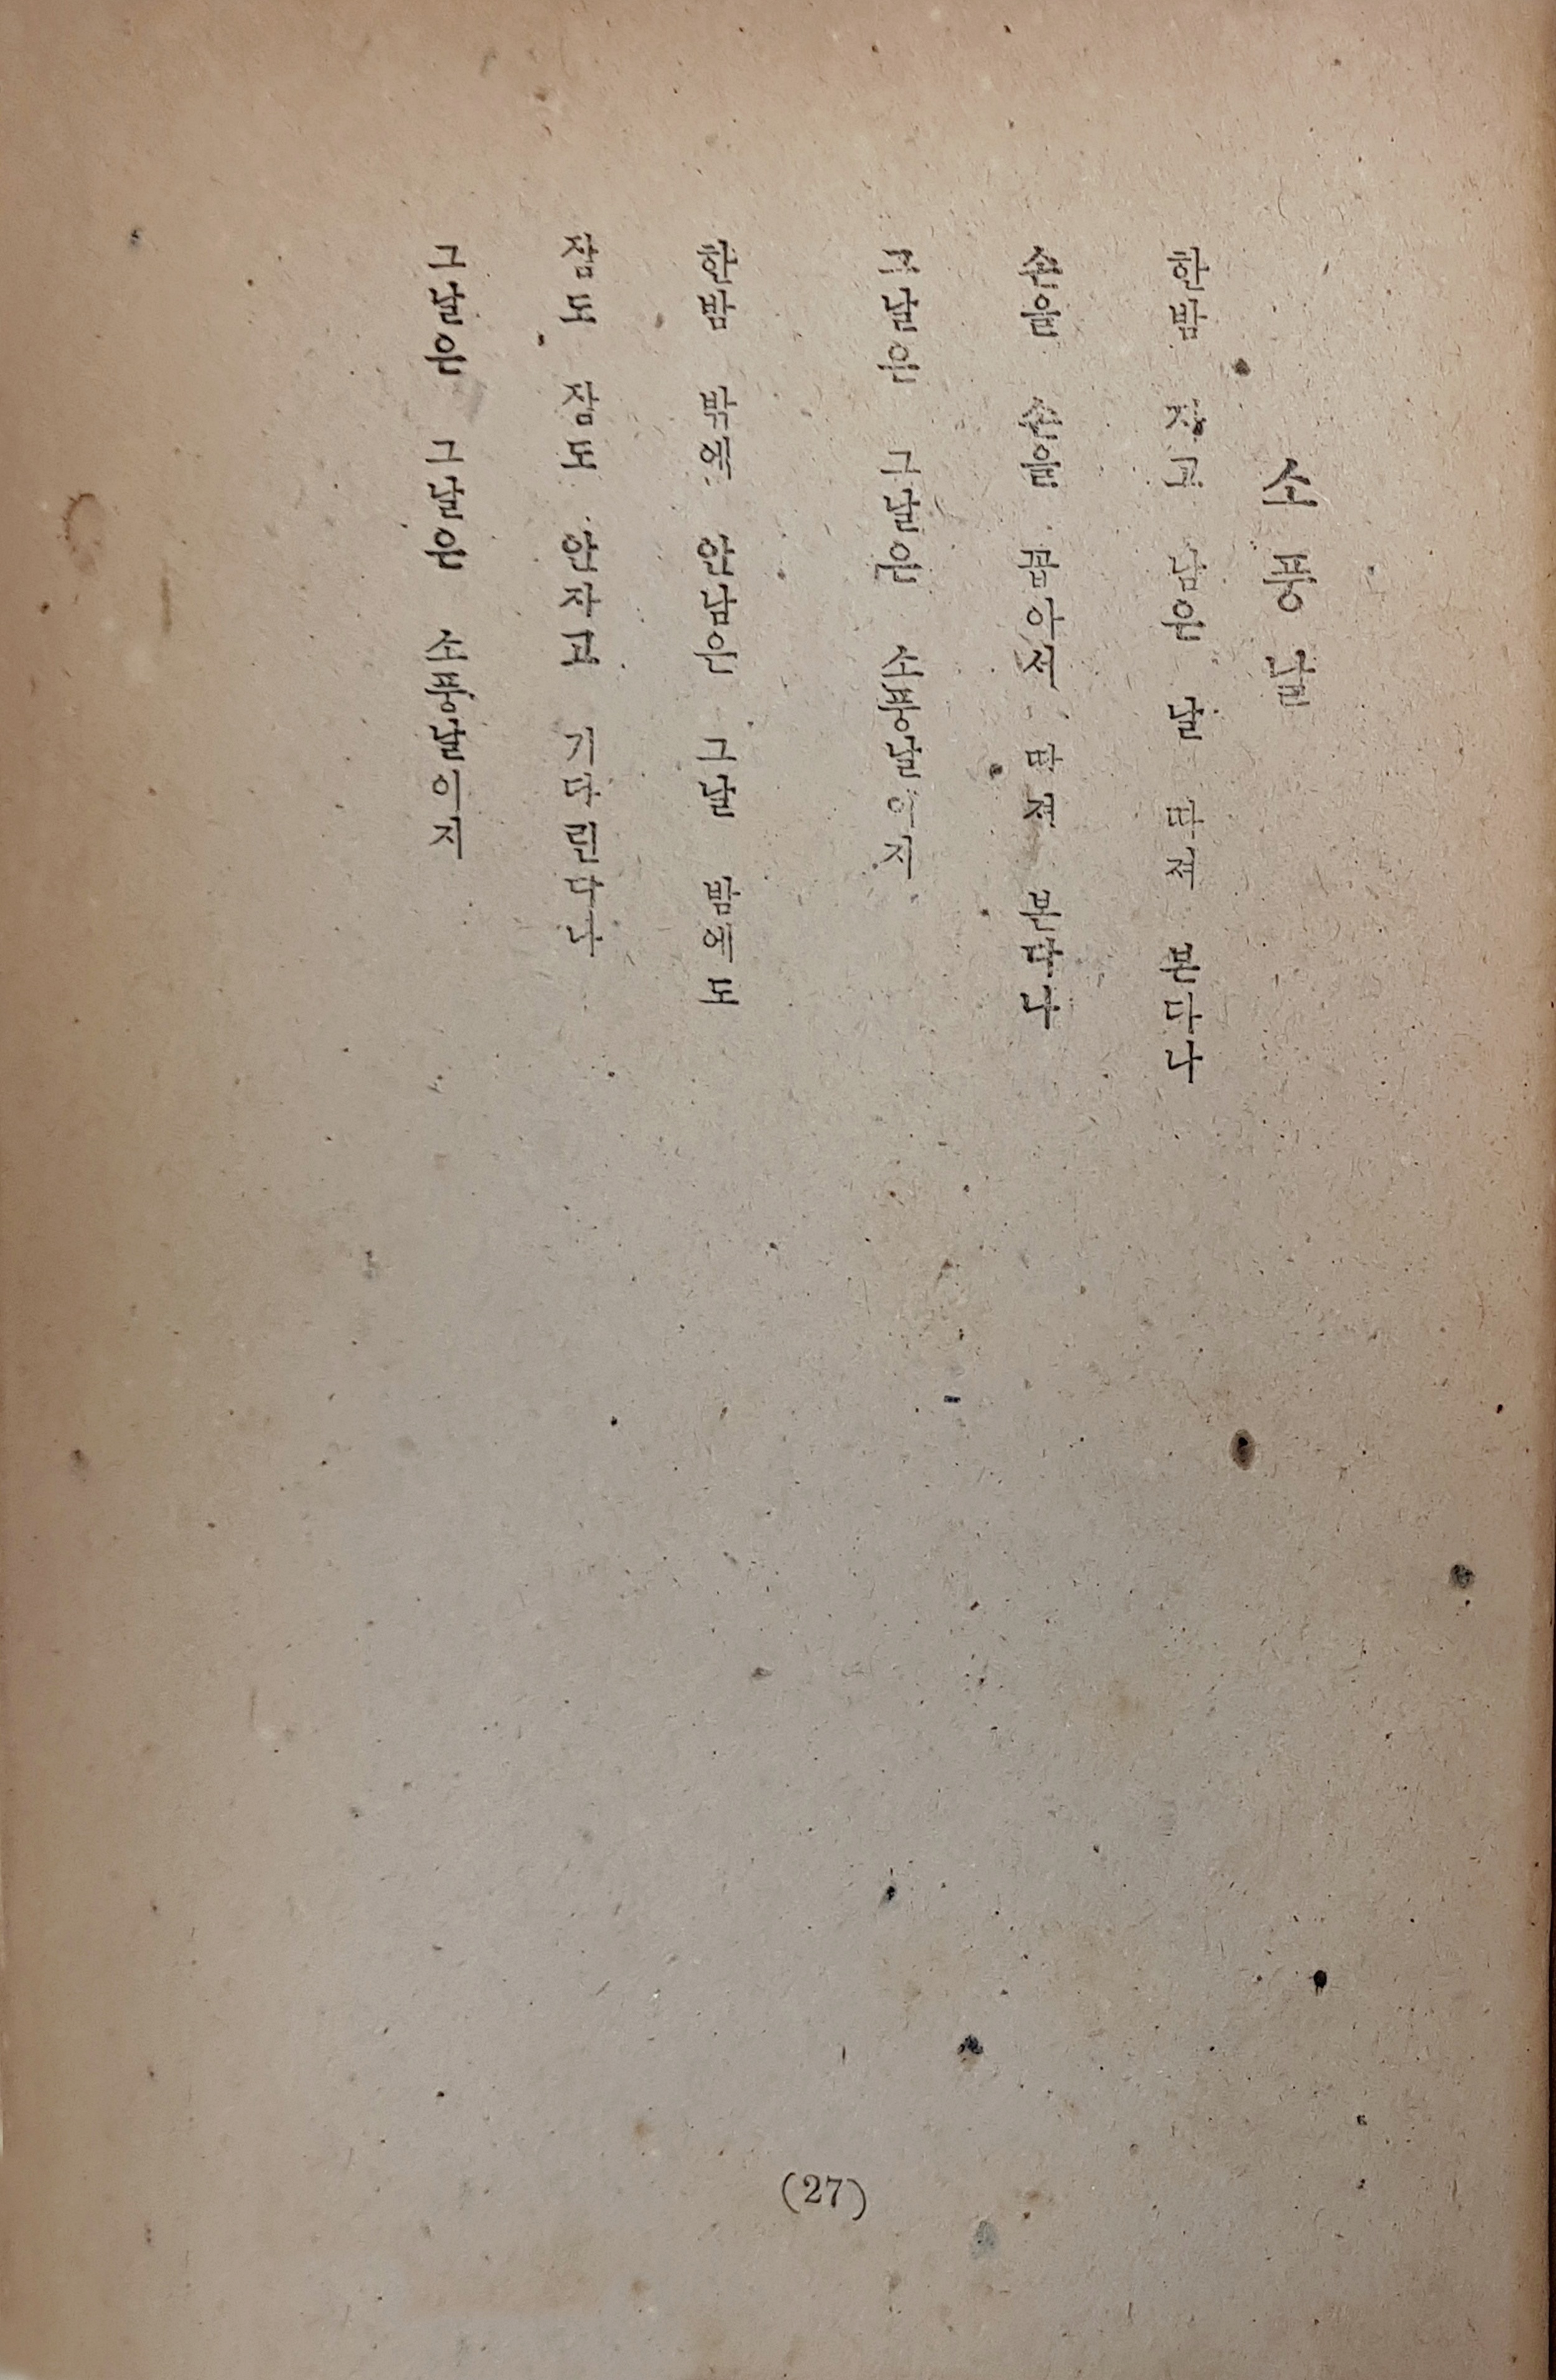 소풍날
한밤 자고 남은 날 따져 본다나
손을 손을 꼽아서 따져 본다나
그날은 그날은 소풍날이지
한밤 밖에 안남은 그날 밤에도
잠도 잠도 안자고 기다린다나
그날은 그날은 소풍날이지
(27)